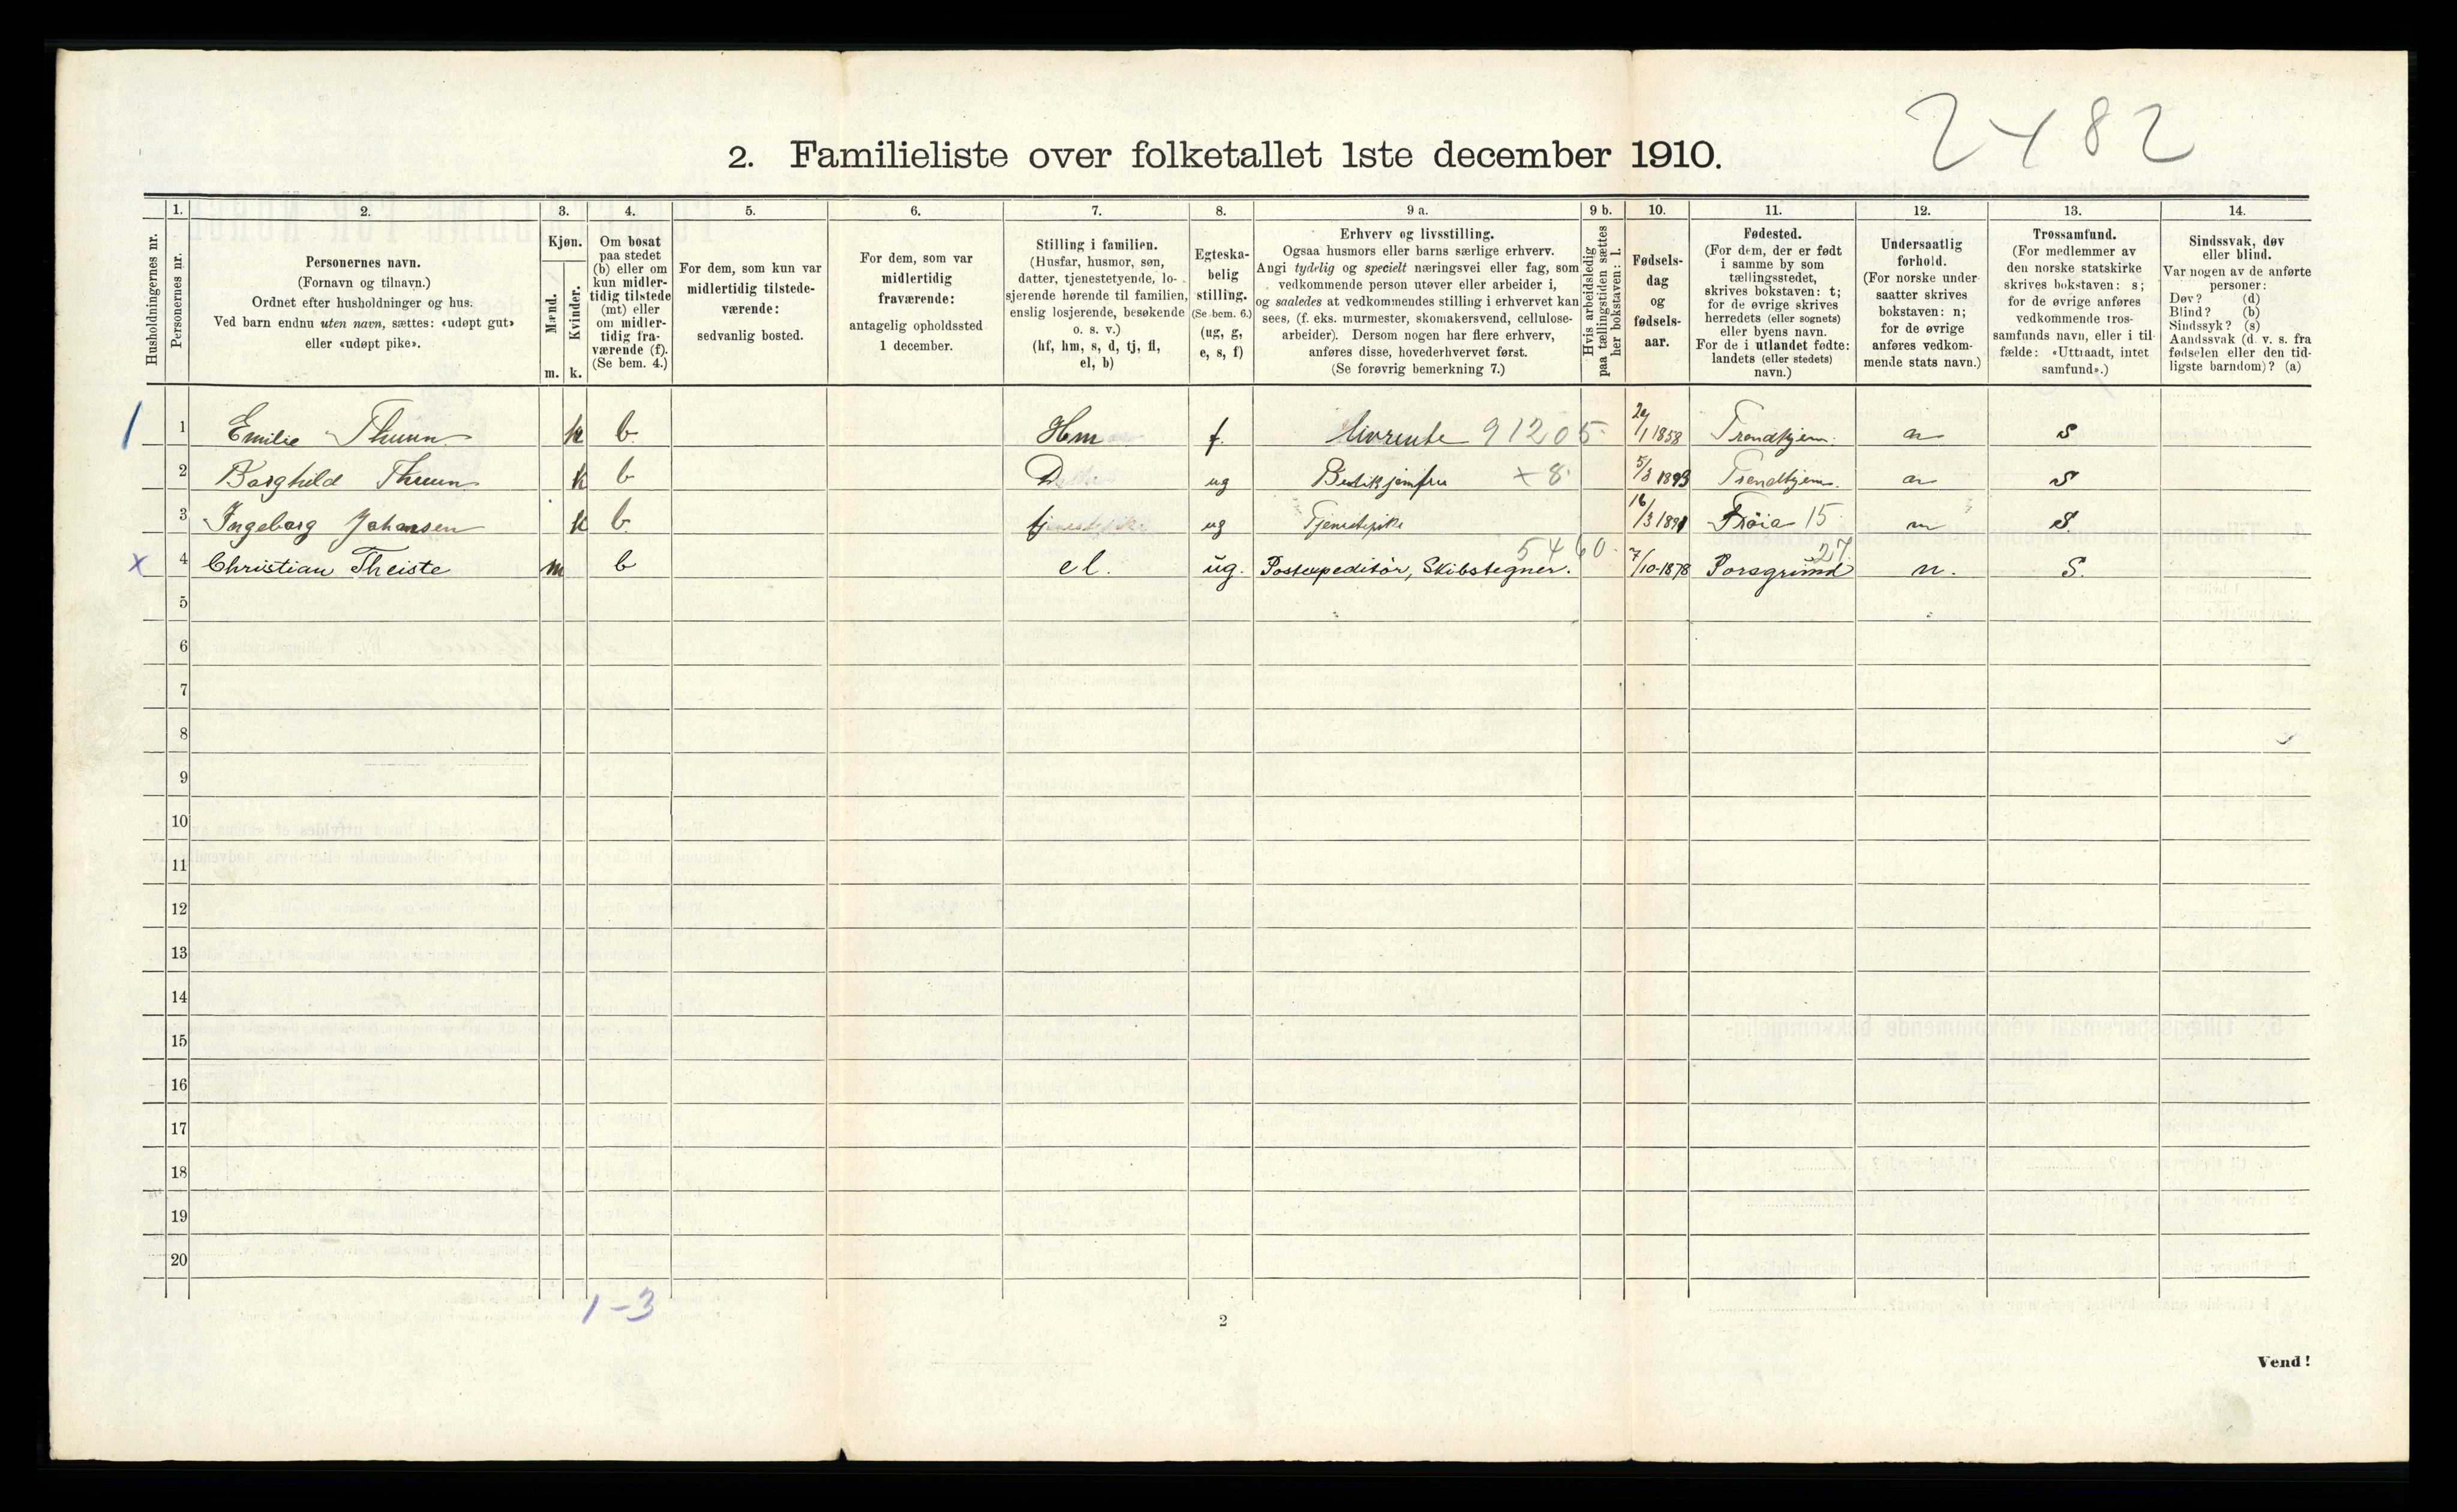 2482
2. Familieliste over folketallet 1ste december 1910.
Husholdningernes nr.
1. Personernes nr.
2. Personernes navn. (Fornavn og tilnavn.) Ordnet efter husholdninger og hus. Ved barn endnu uten navn, sættes: «udøpt gut» eller «udøpt pike».
3. Kjøn. Mænd. m. Kvinder. k.
4. Om bosat paa stedet (b) eller om kun midlertidig tilstede (mt) eller om midlertidig fraværende (f). (Se bem. 4.)
5. For dem, som kun var midlertidig tilstedeværende: sedvanlig bosted.
6. For dem, som var midlertidig fraværende: antagelig opholdssted 1 december.
7. Stilling i familien. (Husfar, husmor, søn, datter, tjenestetyende, losjerende hørende til familien, enslig losjerende, besøkende o. s. v.) (hf, hm, s, d, tj, fl, el, b)
8. Egteskabelig stilling. (Se bem. 6.) (ug, g, e, s, f)
9 a. Erhverv og livsstilling. Ogsaa husmors eller barns særlige erhverv. Angi tydelig og specielt næringsvei eller fag, som vedkommende person utøver eller arbeider i, og saaledes at vedkommendes stilling i erhvervet kan sees, (f. eks. murmester, skomakersvend, cellulosearbeider). Dersom nogen har flere erhverv, anføres disse, hovederhvervet først. (Se forøvrig bemerkning 7.)
9 b. Hvis arbeidsledig paa tællingstiden sættes her bokstaven: l.
10. Fødselsdag og fødselsaar.
11. Fødested. (For dem, der er født i samme by som tællingsstedet, skrives bokstaven: t; for de øvrige skrives herredets (eller sognets) eller byens navn. For de i utlandet fødte: landets (eller stedets) navn.)
12. Undersaatlig forhold. (For norske undersaatter skrives bokstaven: n; for de øvrige anføres vedkommende stats navn.)
13. Trossamfund. (For medlemmer av den norske statskirke skrives bokstaven: s; for de øvrige anføres vedkommende trossamfunds navn, eller i tilfælde: «Uttraadt, intet samfund».)
14. Sindssvak, døv eller blind. Var nogen av de anførte personer: Døv? (d) Blind? (b) Sindssyk? (s) Aandssvak (d. v. s. fra fødselen eller den tidligste barndom)? (a)
1 1 Emilie Thuun k b Hm f. livrente 91205 1858 Trondhjem. n s
2 Borghild Thuun k b D ug Butikjomfru x 8 5/3 1893 Trondhjem. n s
3 Ingeborg Johansen k b tj ug Tjenestepike 16/3 1891 Frøia 15 n s
x 4 Christian Theiste m b el. ug. Postexpeditør, Skibstegner. 5460 7/10-1878 Porsgrund 27 n. S.
5
6
7
8
9
10
11
12
13
14
15
16
17
18
19
20
1-3
2
Vend!